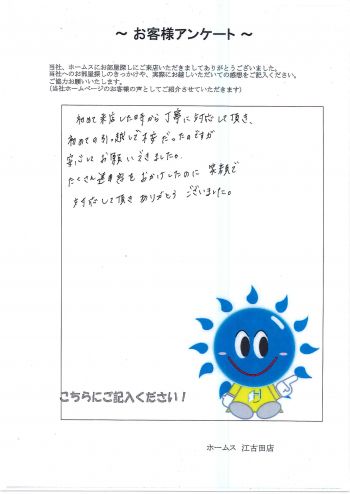 ～ お客様アンケート ～
当社、ホームスにお部屋探しにご来店いただきましてありがとうございました。
当社へのお部屋探しのきっかけや、実際にお越しいただいての感想をご記入ください。
ご協力お願いいたします。
(当社ホームページのお客様の声としてご紹介させていただきます)
初めて来店した時から丁寧に対応して頂き、
初めての引っ越しで不安だったのですが
安心してお願いできました。
たくさん迷惑をおかけしたのに 笑顔で
対応して頂きありがとう ございました。
こちらにご記入ください！
ホームス 江古田店